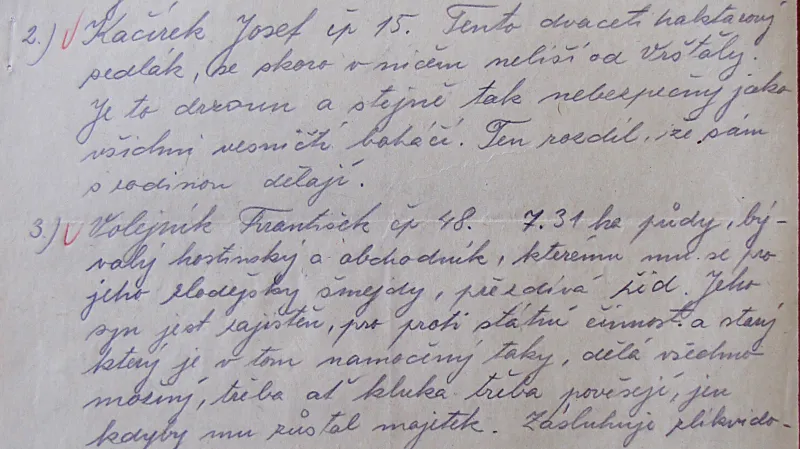 2.) Kačírek Josef čp 15. Tento dvaceti haktarový
sedlák, se skoro v ničem neliší od Vrštěly.
Je to drzoun a stejně tak nebezpečný jako
všichni vesničtí boháčí. Ten rozdíl, že sám
s rodinou dělají.
3.) Volejník František čp 48. 7.31 ha půdy, bý-
valý hostinský a obchodník, kterému mu se pro
jeho zlodějsky šmejdy, přezdívá žid. Jeho
syn jest zajištěn, pro proti státní činnost a starý
který je v tom namočený taky, dělá všechno
možný, třeba ať kluka třeba pověsejí, jen
kdyby mu zůstal majetek. Zásluhuje zlikvido-